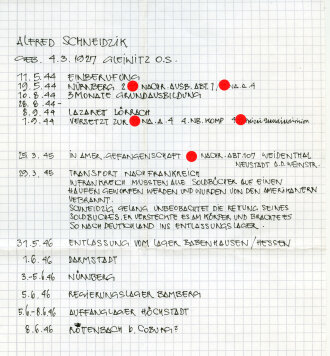 ALFRED SCHNEIDZIK
GEB. 4.3.1927 GLEINITZ O.S.
11.5.44 EINBERUFUNG
19.5.44 NÜRNBERG 2 NACHR. AUSB. ABT. 7, A.A.4
10.8.44 3 MONATE GRUNDAUSBILDUNG
28.8.44-
8.9.44 LAZARET LÖRRACH
1.9.44 VERSETZT ZUR NA.A.4 4.NB.KOMP 4
25.3.45 IN AMER. GEFANGENSCHAFT NACHR. ABT. 107 WEIDENTHAL
NEUSTADT A.D. WEINSTR.
29.3.45 TRANSPORT NACH FRANKREICH
IN FRANKREICH MUßSTEN ALLE SOLDBÜCHER AUF EINEN
HAUFEN GEWORFEN WERDEN UND WURDEN VON DEN AMERIKANERN
VERBRANNT.
SCHNEIDZIG GELANG UNBEOBACHTET DIE RETUNG SEINES
SOLDBUCHES. ER VERSTECKTE ES AM KÖRPER UND BRACHTE ES
SO NACH DEUTSCHLAND INS ENTLASSUNGSLAGER.
31.5.46 ENTLASSUNG VOM LAGER BABENHAUSEN/HESSEN
1.6.46 DARMSTADT
3.-5.6.46 NÜRNBERG
5.6.46 REGIERUNGSLAGER BAMBERG
5.6.-8.6.46 AUFFANGLAGER HÖCHSTADT
8.6.46 RÖTENBACH b. COBURG?